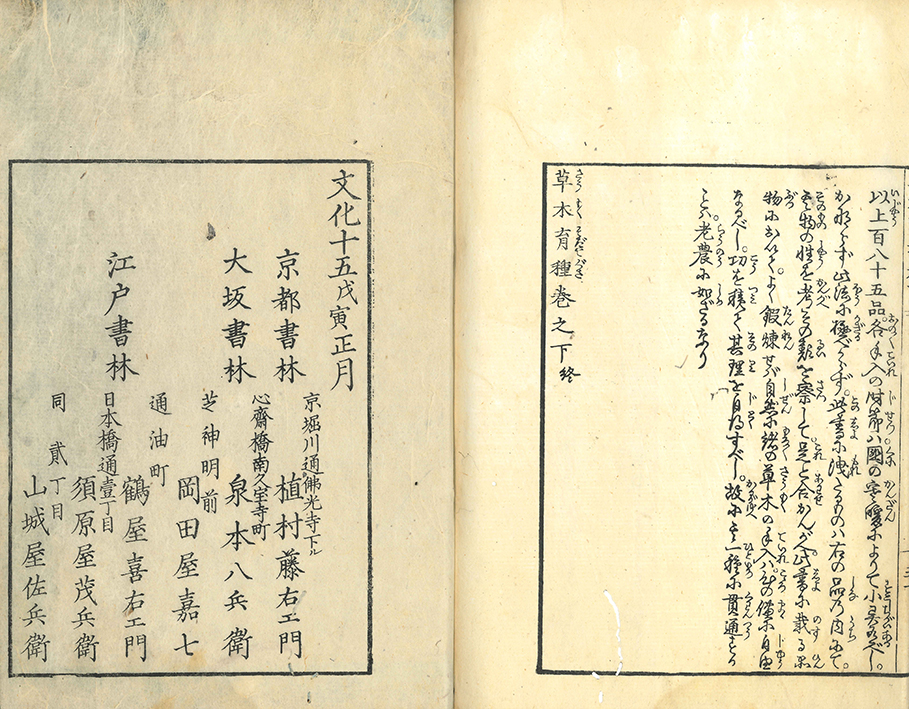 以上百八十五品。各手入の時節ハ國の寒暖によりて小異あるべし。
かならず此法に極べからず。此書に洩たるものハ右の品の内にて。
其物の性を考。その類を察して是と合かんがへ。此書に載る品
物に於いてよく鍛煉せバ自然に諸の草木の手入ハ
なるべし。功を積て其理を自得すべし。故に
ことハ老農に如ざるなり
草木育種巻之下終
文化十五戊寅正月
京都書林
京堀川通佛光寺下ル
植村藤右エ門
大坂書林
心齋橋南久宝寺町
泉本八兵衛
江戸書林
芝神明前
岡田屋嘉七
通油町
鶴屋喜右エ門
日本橋通壹丁目
須原屋茂兵衛
同貳丁目
山城屋佐兵衛